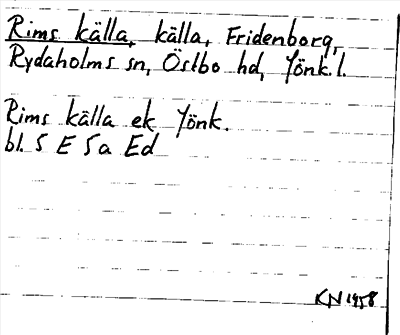 Rims källa, källa, Fridenborg,
Rydaholms sn, Östbo hd, Jönk. l.
Rims källa ek Jönk.
bl. 5 E 5a Ed
KN 1958